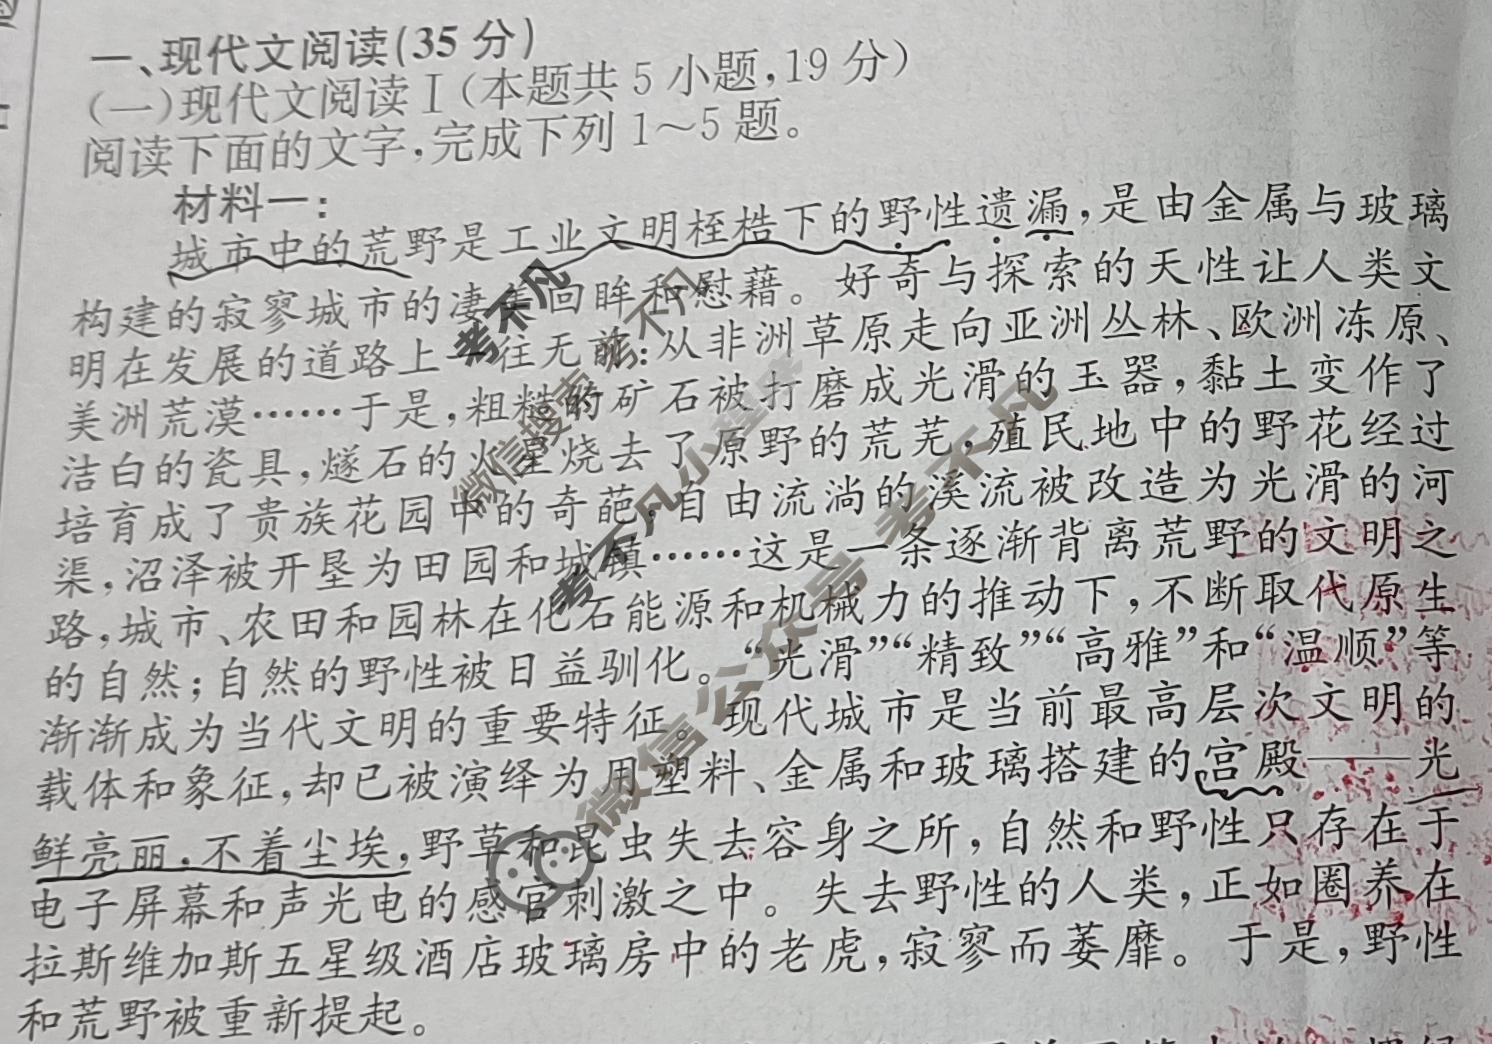 一、现代文阅读(35分)
(一)现代文阅读Ⅰ(本题共5小题,19分)
阅读下面的文字,完成下列1～5题。
材料一:
城市中的荒野是工业文明桎梏下的野性遗漏,是由金属与玻璃
构建的寂寥城市的凄美回眸和慰藉。好奇与探索的天性让人类文
明在发展的道路上一往无前:从非洲草原走向亚洲丛林、欧洲冻原、
美洲荒漠……于是,粗糙的矿石被打磨成光滑的玉器,黏土变作了
洁白的瓷具,燧石的火星烧去了原野的荒芜,殖民地中的野花经过
培育成了贵族花园中的奇葩,自由流淌的溪流被改造为光滑的河
渠,沼泽被开垦为田园和城镇……这是一条逐渐背离荒野的文明之
路,城市、农田和园林在化石能源和机械力的推动下,不断取代原生
的自然;自然的野性被日益驯化。“光滑”“精致”“高雅”和“温顺”等
渐渐成为当代文明的重要特征。现代城市是当前最高层次文明的
载体和象征,却已被演绎为用塑料、金属和玻璃搭建的宫殿——光
鲜亮丽,不着尘埃,野草和昆虫失去容身之所,自然和野性只存在于
电子屏幕和声光电的感官刺激之中。失去野性的人类,正如圈养在
拉斯维加斯五星级酒店玻璃房中的老虎,寂寥而萎靡。于是,野性
和荒野被重新提起。
考不凡
微信搜索 考不凡
考不凡小程序
微信公众号 考不凡